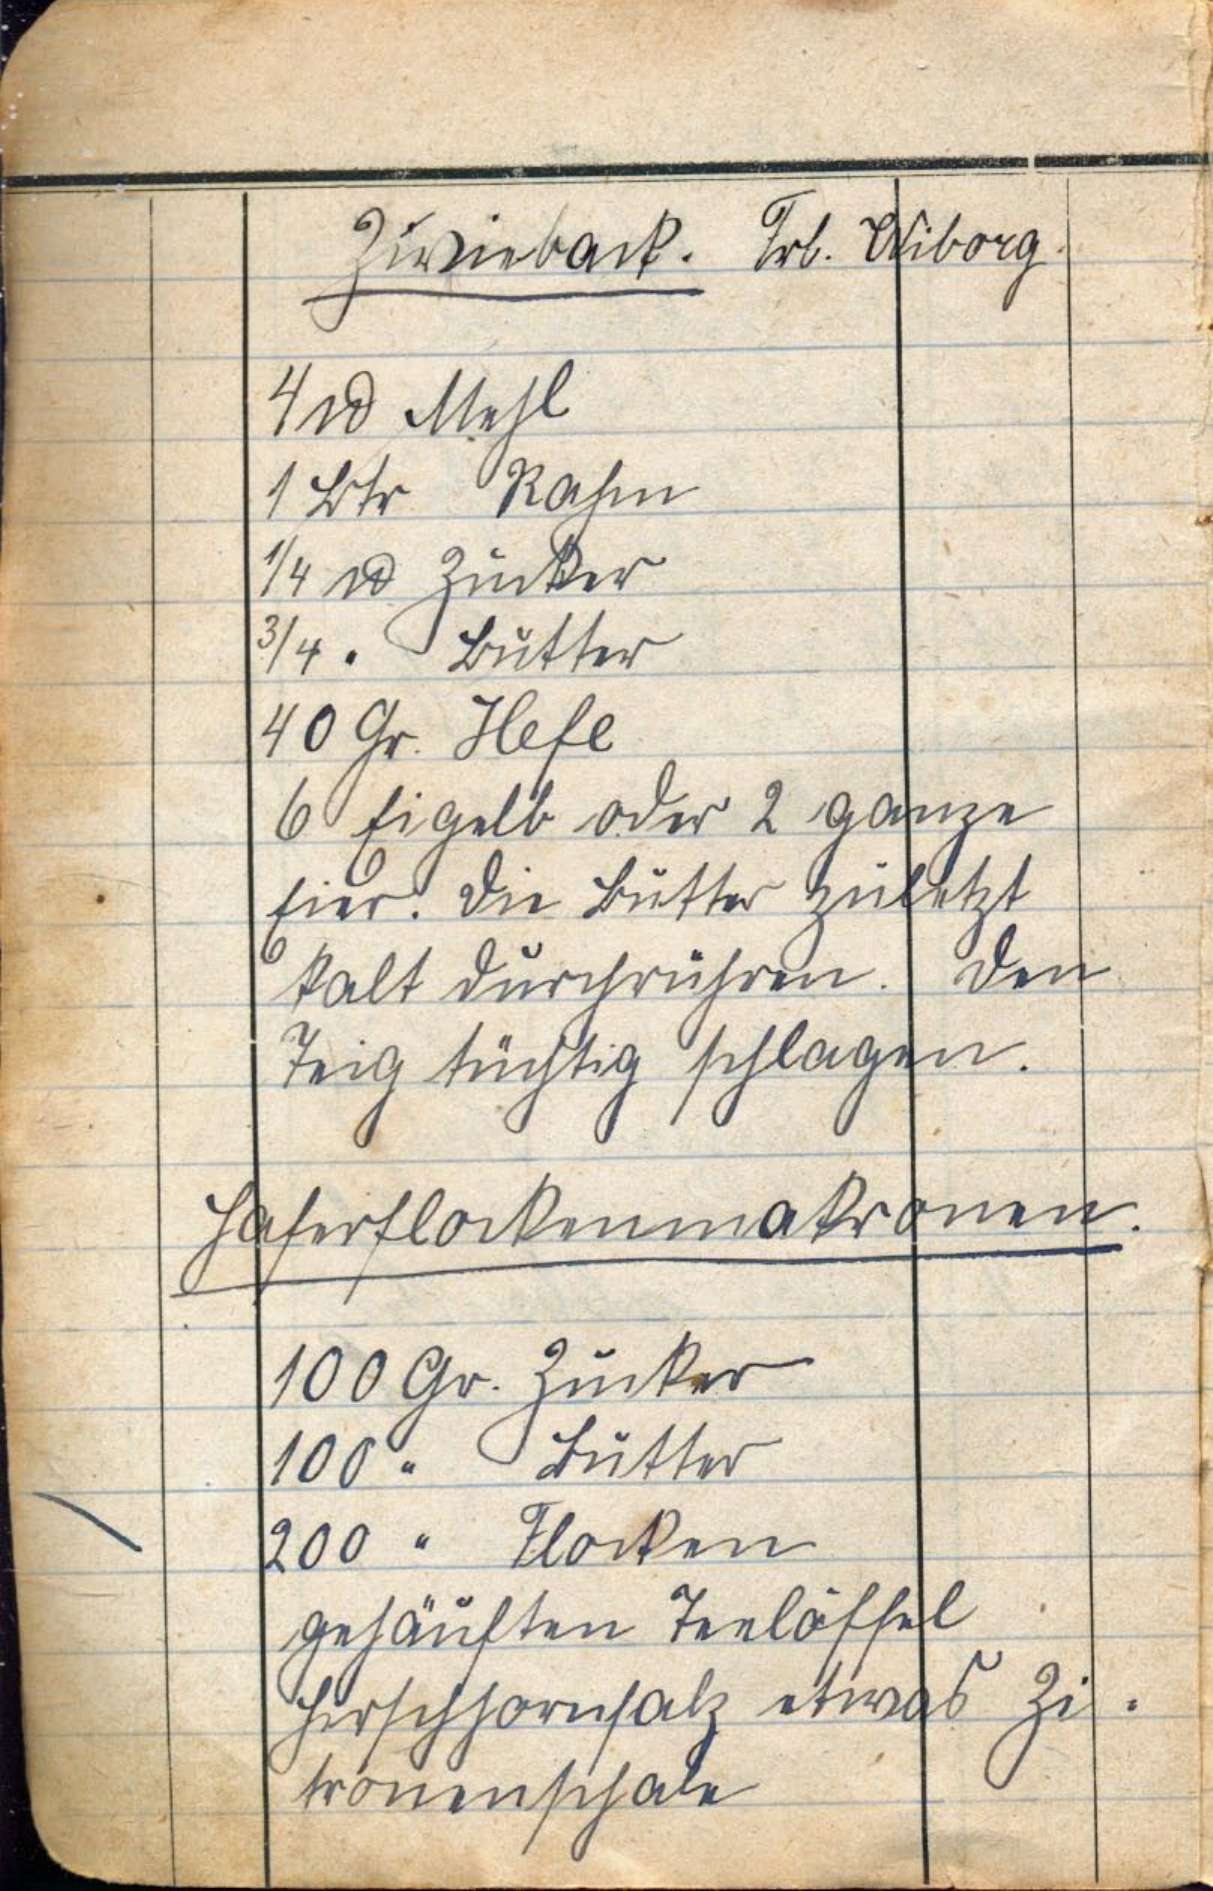 Zwieback. Frl. Wiborg.
4 ℔ Mehl
1 Ltr Rahm
1/4 ℔ Zucker
3/4 " Butter
40 Gr. Hefe
6 Eigelb oder 2 ganze
Eier. Die Butter zuletzt
kalt durchrühren. Den
Teig tüchtig schlagen.
Haferflockenmakronen.
100 Gr. Zucker
100 " Butter
200 " Flocken
gehäuften Teelöffel
Hirschhornsalz etwas Zi-
tronenschale